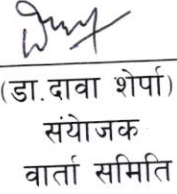 (डा.दावा शेर्पा)
संयोजक
वार्ता समिति